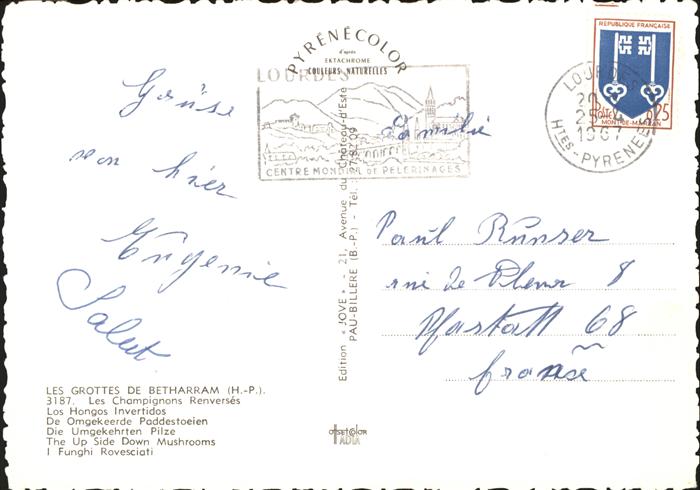 PYRÉNÉCOLOR
d'après
EKTACHROME
COULEURS NATURELLES
LOURDES
CENTRE MONDIAL DE PÈLERINAGES
REPUBLIQUE FRANÇAISE
POSTES 0,25
MONT-DE-MARSAN
LOURDES
1967
HTES-PYRENEES
Grüsse
von hier
Eugenie
Salut
Familie
Paul Runser
rue de 8
Pfastatt 68
france
Edition « JOVE » - 21, Avenue du Château-d'Este
PAU-BILLERE (B.-P.) - Tél. : 27.82.09
LES GROTTES DE BETHARRAM (H.-P.).
3187. Les Champignons Renversés
Los Hongos Invertidos
De Omgekeerde Paddestoeien
Die Umgekehrten Pilze
The Up Side Down Mushrooms
I Funghi Rovesciati
offsetcolor
ADIA